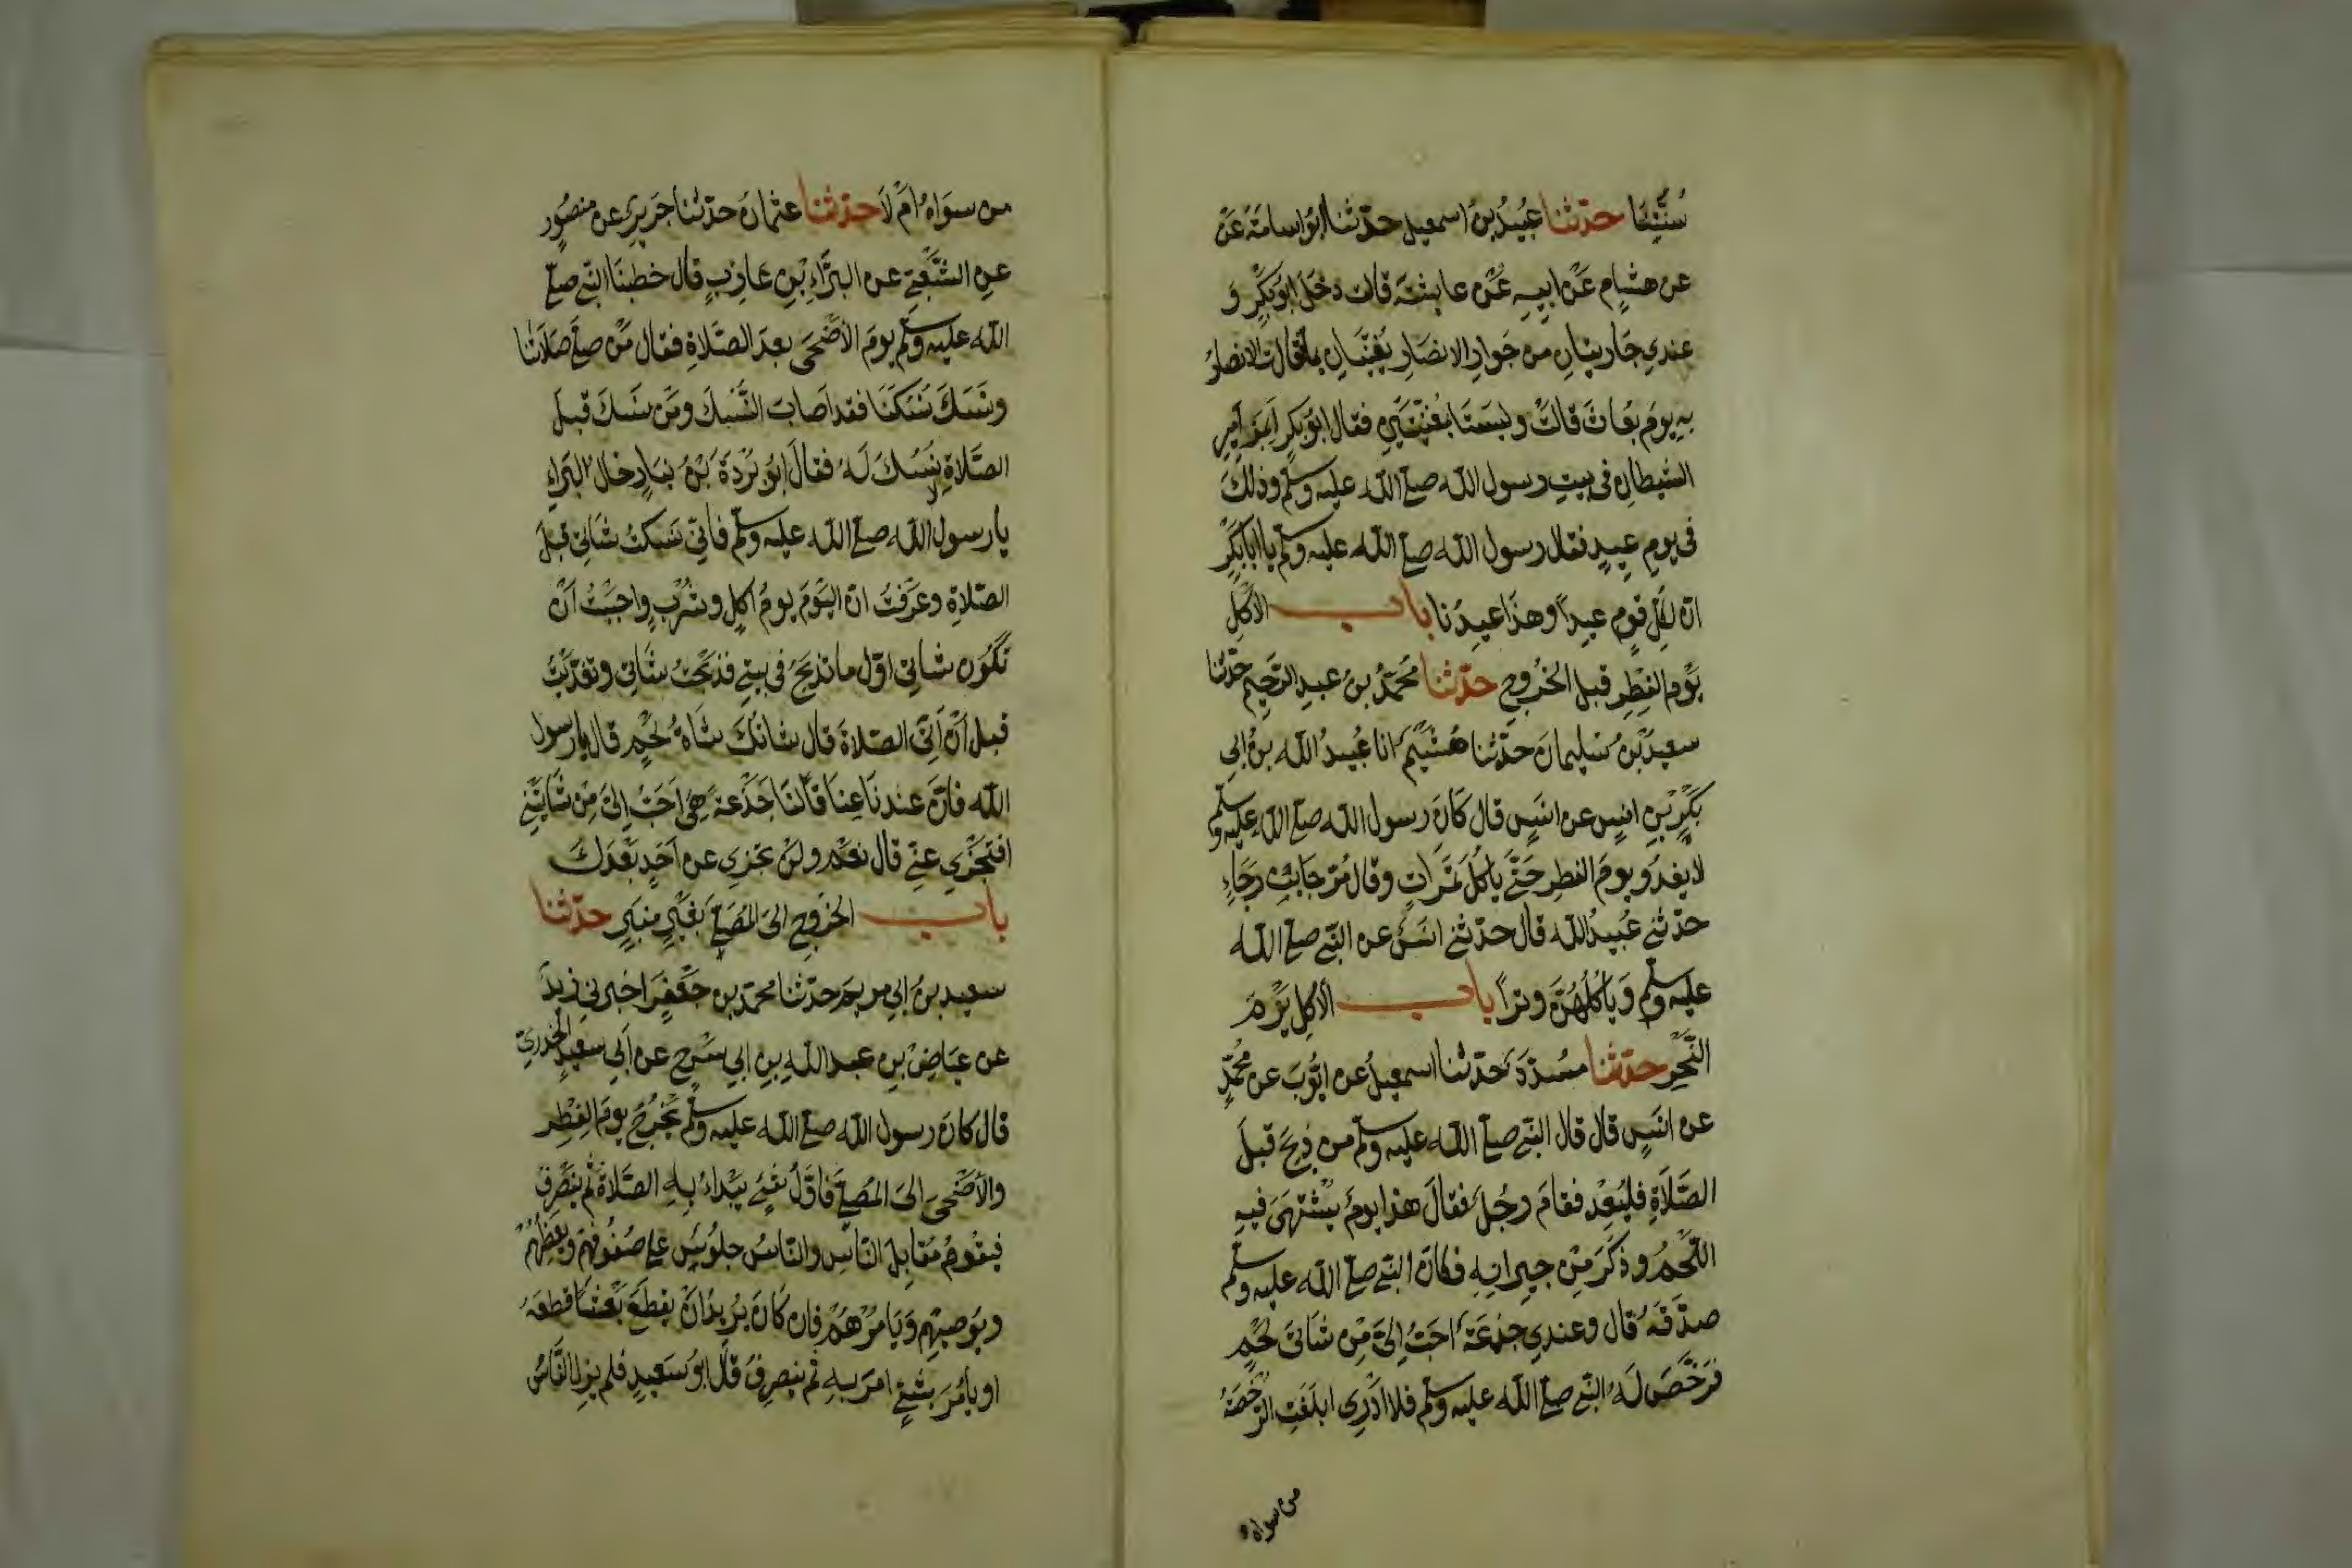 سُنَّتَنَا حدّثنا عُبَيْدُ بنُ اسمعيل حدّثنا ابُو اسامَةَ عَنْ
عن هشامٍ عَنْ ابيهِ عَنْ عايشة قالت دخَلَ ابُو بَكْرٍ وَ
عندي جاريتانِ من جَوارِ الانصَارِ يُغَنّيَانِ بما تقالت الانصارُ
بهِ يومَ بعاثَ قالَتْ وليسَتَا بمُغَنّيَتَيْنِ فقال ابُو بَكرٍ اَبمَزامِيرِ
الشيطانِ فى بيتِ رسول الله صلى الله عليه وسلم وذلكَ
فى يومِ عيدٍ فقال رسول الله صلى الله عليه وسلم يا ابا بَكْرٍ
انّ لكلّ قومٍ عيداً وهذا عيدُنا باب الاَكلِ
يَوْم الفِطرِ قبل الخُروجِ حدّثنا محمّدُ بنُ عبدِ الرّحيم حدّثنا
سعيدُ بْنُ سُليمانَ حدّثنا هُشَيْمٌ انا عُبيدُ الله بنُ ابى
بَكْرِ بْنِ انسٍ عن انَسٍ قال كانَ رسول الله صلى الله عليه وسلم
لا يغدُو يومَ الفطرِ حَتّى ياكُلَ تمَراتٍ وقال مُرَجّا بنُ رَجَاءٍ
حدّثنى عُبيدُ الله قال حدّثنى انسٌ عن النّبى صلى الله
عليه وسلم وَيَاكُلُهُنَّ وتراً باب الاَكلِ يَوْمَ
النّحْرِ حدّثنا مسُدّدٌ حدّثنا اسمعيلُ عن ايّوبَ عن محُمّدٍ
عن انسٍ قال قال النّبى صلى الله عليه وسلم من ذبحَ قبلَ
الصّلاةِ فليُعِدْ فقامَ رجُلٌ فقالَ هذا يومٌ يُشْتَهَى فيهِ
اللّحْمُ وذكَرَ مِنْ جيرانِهِ فكانّ النبّى صلى الله عليه وسلم
صدّقَهُ قال وعندي جذعَةٌ احَبُّ الَىَّ مِنْ شاتَىْ لحْمٍ
فرَخّصَ لَهُ النّبى صلى الله عليه وسلم فلا ادْرِى ابلَغَتِ الرّخصَةُ
من سواه
من سوَاهُ امْ لَا حدّثنا عثمانُ حدّثنا جَريرٌ عن منصُورٍ
عن الشّعْبِىّ عن البَرَّاءِ بْنِ عَازِبٍ قال خطبنَا النبّى صلى
الله عليه وسلم يومَ الاَضْحَى بعدَ الصّلاةِ فقال مَنْ صلّى صَلَاتنا
ونسَكَ نُسُكَنَا فقد اَصابَ النُّسُكَ ومَن نسَكَ قبلَ
الصّلاةِ لا نُسُكَ لَهُ فقالَ ابُو بُرْدَةَ بْنُ نيَارٍ خال البَراءِ
يا رسول الله صلى الله عليه وسلم فانّى نسَكتُ شاتِى قبلَ
الصّلاةِ وعَرَفتُ انّ اليَوْمَ يومُ اكلٍ وشُرْبٍ واحبَبْتُ اَنْ
تكُونَ شاتِى اوّل ما تذبَحُ فى بيتى فذبَحْتُ شاتِى وتغدّيْتُ
قبلَ اَنْ اَتىَ الصّلاةَ قال شاتُكَ شَاةُ لحْمٍ قال يا رسول
الله فانّ عندنَا عنَاقًا لنَا جَذَعَةً هِىَ اَحَبُّ اِلىَّ مِنْ شاتَيْنِ
افتَجْزِي عنّى قال نعَمْ ولَنْ تجزِي عن اَحَدٍ بَعْدَكَ
باب الخروجِ الى المُصَلّى بغَيْرِ منبَرٍ حدّثنا
سعيدُ بنُ ابي مريمَ حدّثنا محمّد بن جعْفَرٍ اخبرنى زيدٌ
عن عيَاضِ بْنِ عبد اللهِ بنِ ابي سَرْحٍ عن اَبي سَعيدٍ الخدرىّ
قال كانَ رسول الله صلى الله عليه وسلم يَخْرُجُ يومَ الفِطْرِ
والاَضْحَى الى المُصلّى فاَوّلُ شىءٍ يَبْداءُ بهِ الصّلاةُ ثم ينصَرِفُ
فيقومُ مُقابِلَ النّاسِ والنّاسُ جلُوسٌ على صُفُوفِهِمْ ويَعِظُهُمْ
ويُوصيهم وَيَامُرُهُمْ فان كَانَ يُريدُ اَنْ يقطَعَ بَعْثًا قطعَهُ
او يأمُرَ بشىءٍ امرَ بهِ ثم ينصرِفُ قال ابُو سَعيدٍ فلم يزلِ النَّاسُ